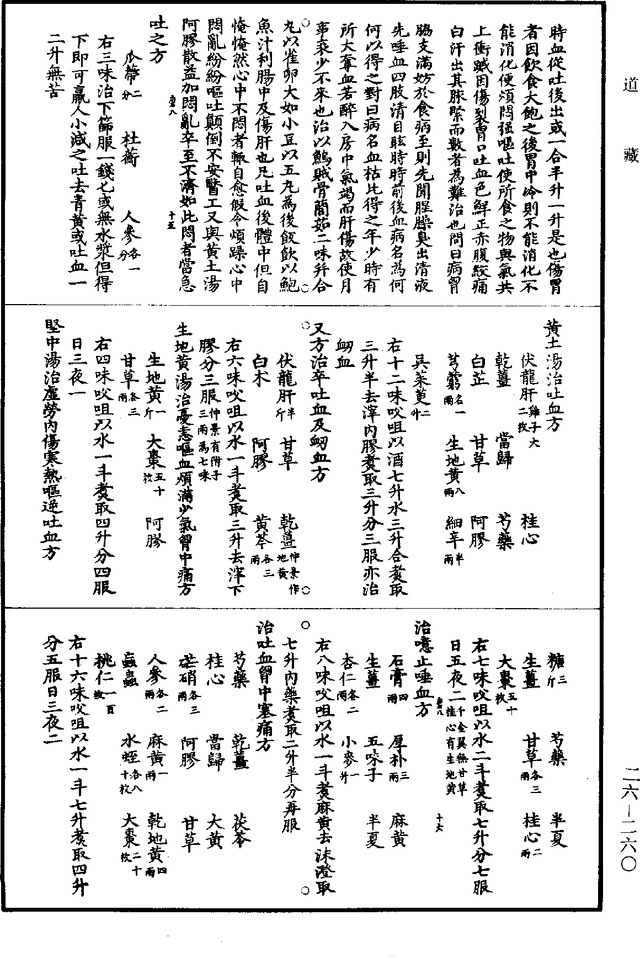 道藏
時血從吐後出或一合半升一升是也傷胃
者因飲食大飽之後胃中冷則不能消化不
能消化便煩悶强嘔吐使所食之物與氣共
上衝蹴因傷裂胃口吐血色鮮正赤腹絞痛
白汗出其脉緊而數者為難治也問曰病胷
脇支滿妨於食病至則先聞腥臊臭出清液
先唾血四肢清目眩時時前後血病名為何
何以得之對曰病名血枯此得之年少時有
所大奪血若醉入房中氣竭而肝傷故使月
事衰少不來也治以鰞賊骨䕡茹二味幷合
丸以雀卵大如小豆以五丸為後飯飲以鮑
魚汁利腸中及傷肝也凡吐血後體中但自
悁悁然心中不悶者輒自愈假令煩躁心中
悶亂紛紛嘔吐顛倒不安醫工又與黃土湯
阿膠散益加悶亂卒至不濟如此悶者當急
吐之方
瓜蒂二分 杜蘅 人參各一分
右三味治下篩服一錢匕或無水漿但得
下即可羸人小減之吐去青黃或吐血一
二升無苦
黃土湯治吐血方
伏龍肝雞子大二枚 桂心
乾薑 當歸 芍藥
白芷 甘草 阿膠
芎藭各一兩 生地黃八兩 細辛半兩
吳茱萸二升
右十二味㕮咀以酒七升水三升合煑取
三升半去滓內膠煑取三升分三服亦治
衂血
又方治卒吐血及衂血方
伏龍肝半斤 甘草 乾薑仲景作乾地黃
白朮 阿膠 黃芩各三兩
右六味㕮咀以水一斗煑取三升去滓下
膠分三服仲景有附子三兩為七味
生地黃湯治憂恚嘔血煩滿少氣胷中痛方
生地黃一斤 大棗五十枚 阿膠
甘草各三兩
右四味㕮咀以水一斗煑取四升分四服
日三夜一
堅中湯治虛勞內傷寒熱嘔逆吐血方
糖三斤 芍藥 半夏
生薑 甘草各三兩 桂心二兩
大棗五十枚
右七味㕮咀以水二斗煑取七升分七服
日五夜二千金翼無甘草桂心有生地黃
治噫止唾血方
石膏四兩 厚朴三兩 麻黃
生薑 五味子 半夏
杏仁各二兩 小麥一升
右八味㕮咀以水一斗煑麻黃去沫澄取
七升內藥煑取二升半分再服
治吐血胷中塞痛方
芍藥 乾薑 茯苓
桂心 當歸 大黃
芒硝各三兩 阿膠 甘草
人參各二兩 麻黃一兩 乾地黃四兩
䖟蟲 水蛭各八十枚 大棗二十枚
桃仁一百枚
右十六味㕮咀以水一斗七升煑取四升
分五服日三夜二
二六—二六〇